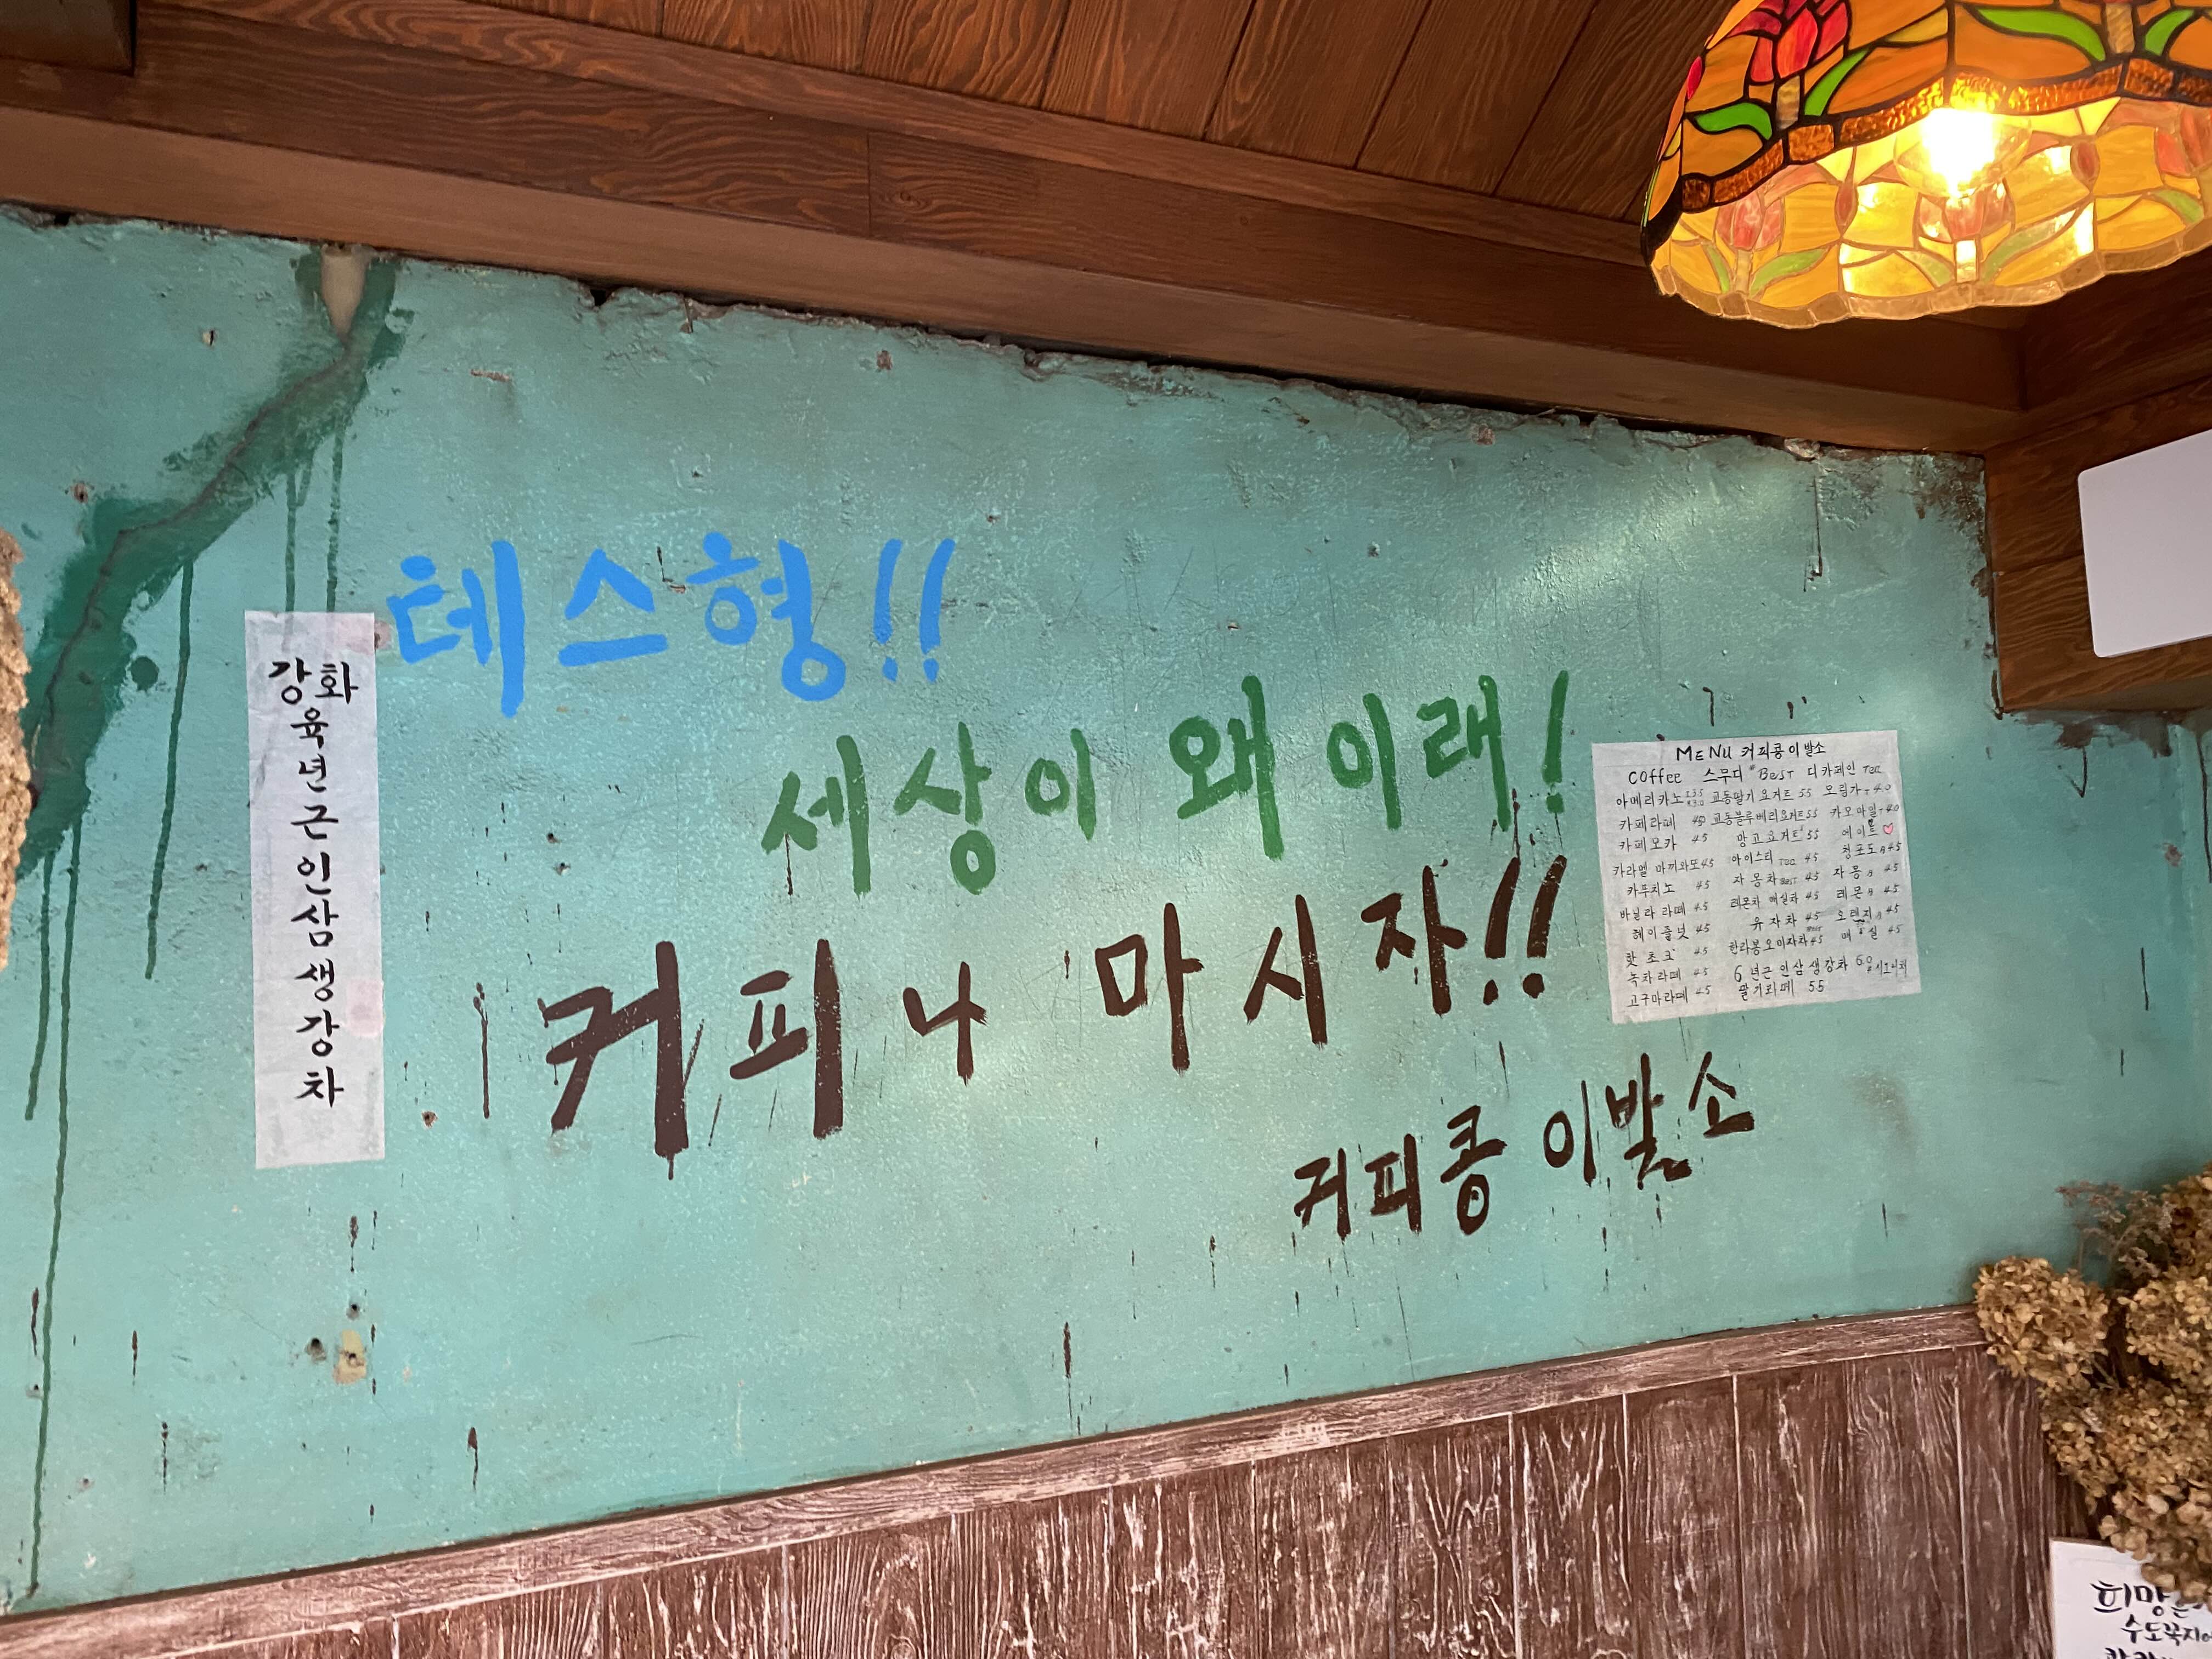 테스형!!
세상이 왜 이래!
커피나 마시자!!
커피콩 이발소
강화
육
년
근
인
삼
생
강
차
MENU 커피콩이발소
Coffee 스무디 BeST 디카페인 Tea
아메리카노 교동딸기 요거트 55 모링가 40
카페라떼 교동블루베리요거트 55 카모마일 40
카페모카 45 망고요거트 55 에이드
카라멜 마끼와또 45 아이스티 Tea 45 청포도 45
카푸치노 45 자몽차 BeST 45 자몽 45
바닐라 라떼 45 레몬차 매실차 45 레몬 45
헤이즐넛 45 유자차 45 오렌지 45
핫쵸코 45 한라봉오미자차 45 매실 45
녹차라떼 45 6년근인삼생강차 60
고구마라떼 45 딸기라떼 55
희망
수도꼭지